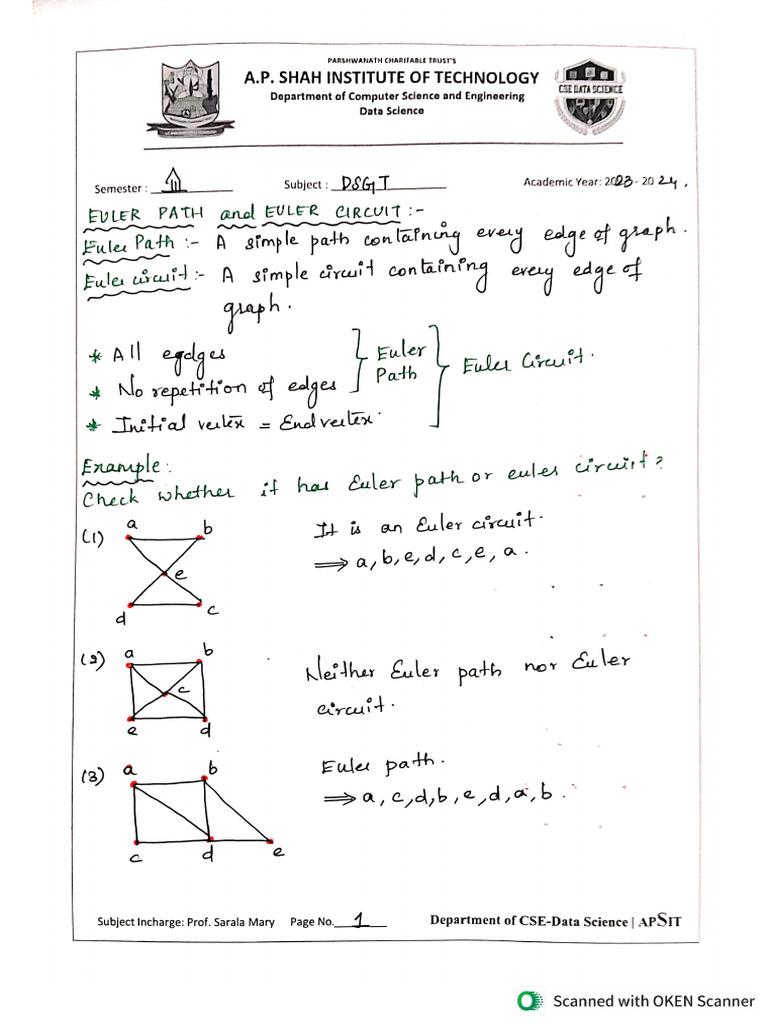 PARSHWANATH CHARITABLE TRUST'S
A.P. SHAH INSTITUTE OF TECHNOLOGY
Department of Computer Science and Engineering
Data Science
CSE DATA SCIENCE
Semester : III Subject : DSGT Academic Year: 2023 - 2024.
EULER PATH and EULER CIRCUIT :-
Euler Path :- A simple path containing every edge of graph.
Euler circuit :- A simple circuit containing every edge of
graph.
* All egdges
* No repetition of edges
Euler
Path
Euler Circuit.
* Initial vertex = End vertex.
Example:
Check whether it has Euler path or euler circuirt?
(1) a b e d c
It is an Euler circuit.
⟹ a, b, e, d, c, e, a.
(2) a b c e d
Neither Euler path nor Euler
circuit.
(3) a b c d e
Euler path.
⟹ a, c, d, b, e, d, a, b.
Subject Incharge: Prof. Sarala Mary Page No. 1 Department of CSE-Data Science | APSIT
Scanned with OKEN Scanner